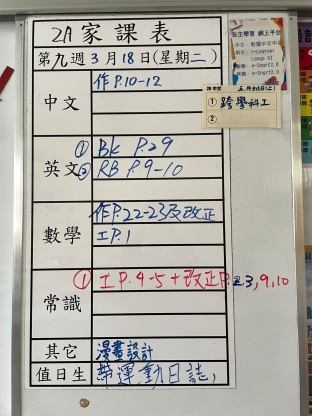 2A 家課表
第九週 3月18日(星期二)
中文
作P.10-12
英文
① Bk P.29
② RB P.9-10
數學
作P.22-23及改正
工P.1
常識
① 工P.4-5+改正P.23,9,10
其它
漫畫設計
值日生
帶運動日誌,
自主學習 網上平台
2B 中文
① 跨學科工
②